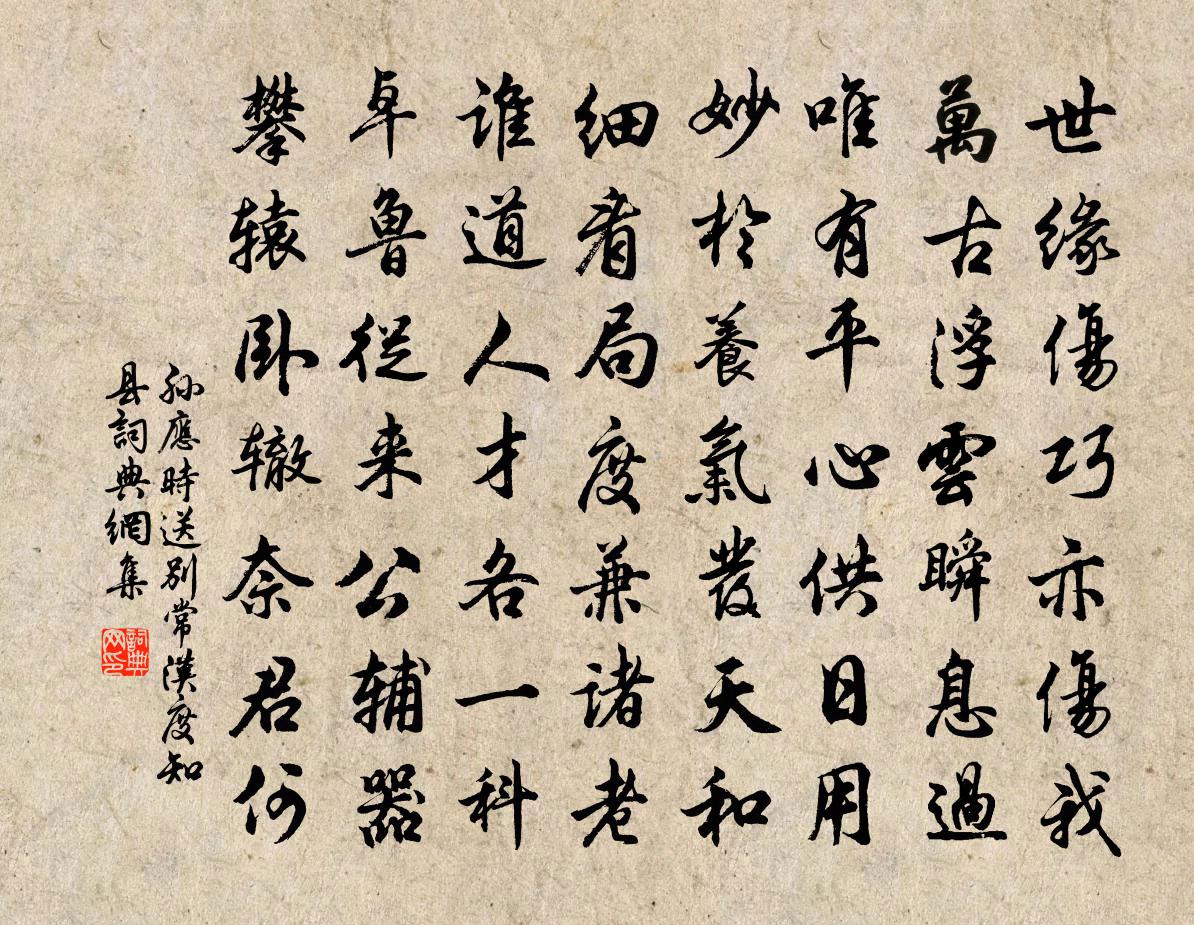 世緣傷巧亦傷我
萬古浮雲瞬息過
唯有平心供日用
妙於養氣發天和
細看局度兼諸老
誰道人才各一科
卓魯從来公輔器
攀辕臥辙奈君何
孫應時送别常漢度知
县詞典網集
詞典网印